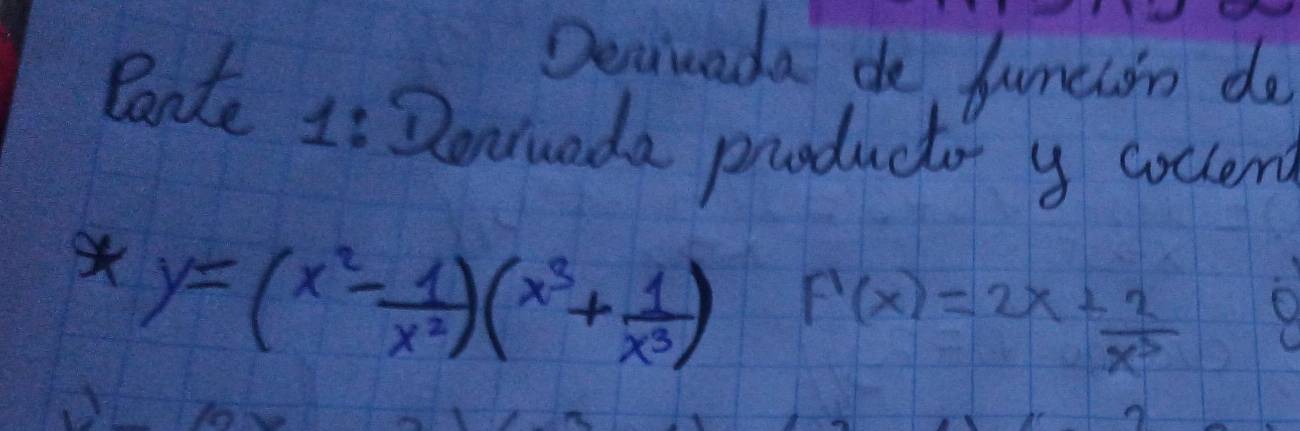 Derivada de función de
Parte 1: Derivada producto y cocient
* y = (x² - 1/x²)(x³ + 1/x³) F'(x) = 2x + 2/x³